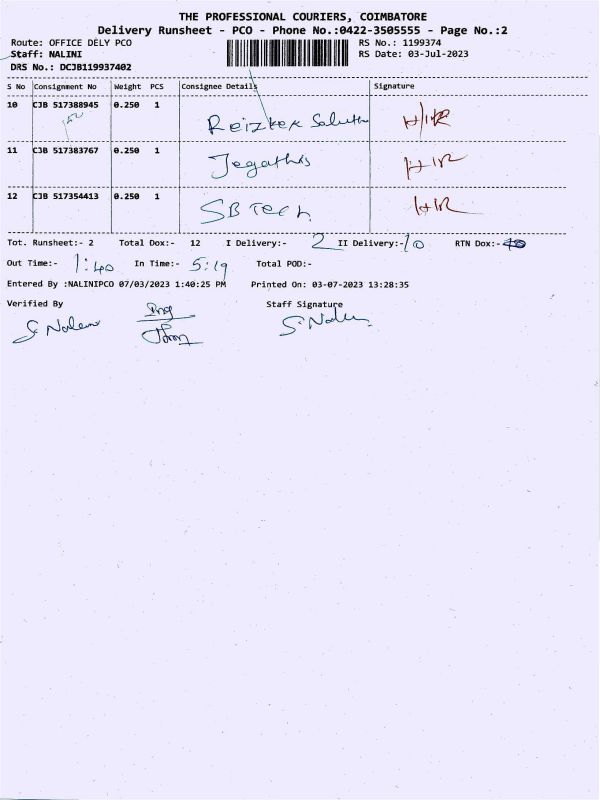 THE PROFESSIONAL COURIERS, COIMBATORE
Delivery Runsheet - PCO - Phone No.:0422-3505555 - Page No.:2
Route: OFFICE DELY PCO RS No.: 1199374
Staff: NALINI RS Date: 03-Jul-2023
DRS No.: DCJB119937402
S No Consignment No Weight PCS Consignee Details Signature
10 CJB 517388945 0.250 1 H/R
11 CJB 517383767 0.250 1 H/R
12 CJB 517354413 0.250 1 SB Tech H/R
Tot. Runsheet:- 2 Total Dox:- 12 I Delivery:- 2 II Delivery:- 10 RTN Dox:-
Out Time:- 1:40 In Time:- 5:19 Total POD:-
Entered By :NALINIPCO 07/03/2023 1:40:25 PM Printed On: 03-07-2023 13:28:35
Verified By Staff Signature